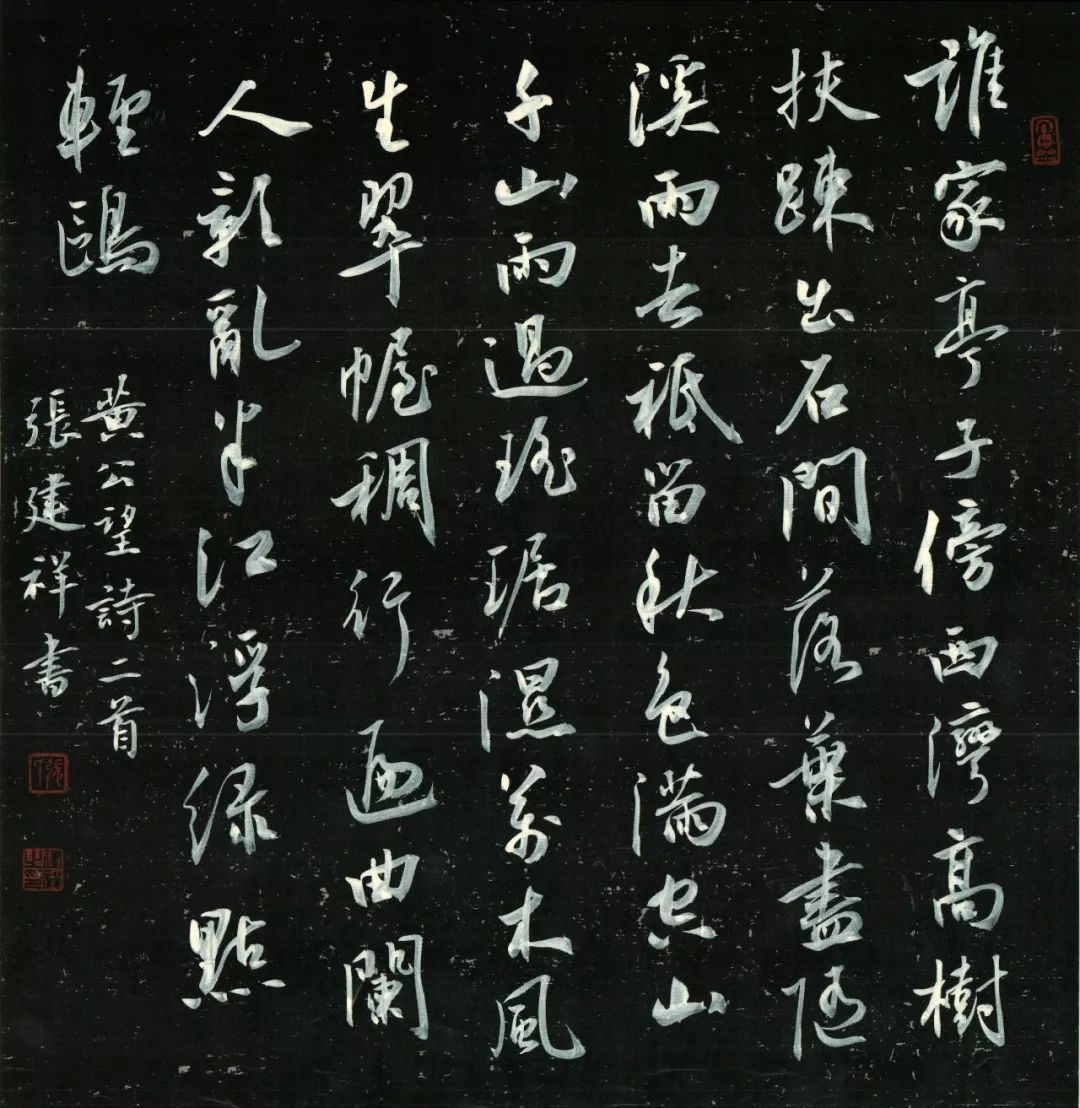 誰家亭子傍西灣高樹
扶踈出石間落葉盡隨
溪雨去祗留秋色滿空山
千山雨過琁琚濕萬木風
生翠幄稠行遍曲闌
人影亂半江浮綠點
輕鷗
黃公望詩二首
張建祥書